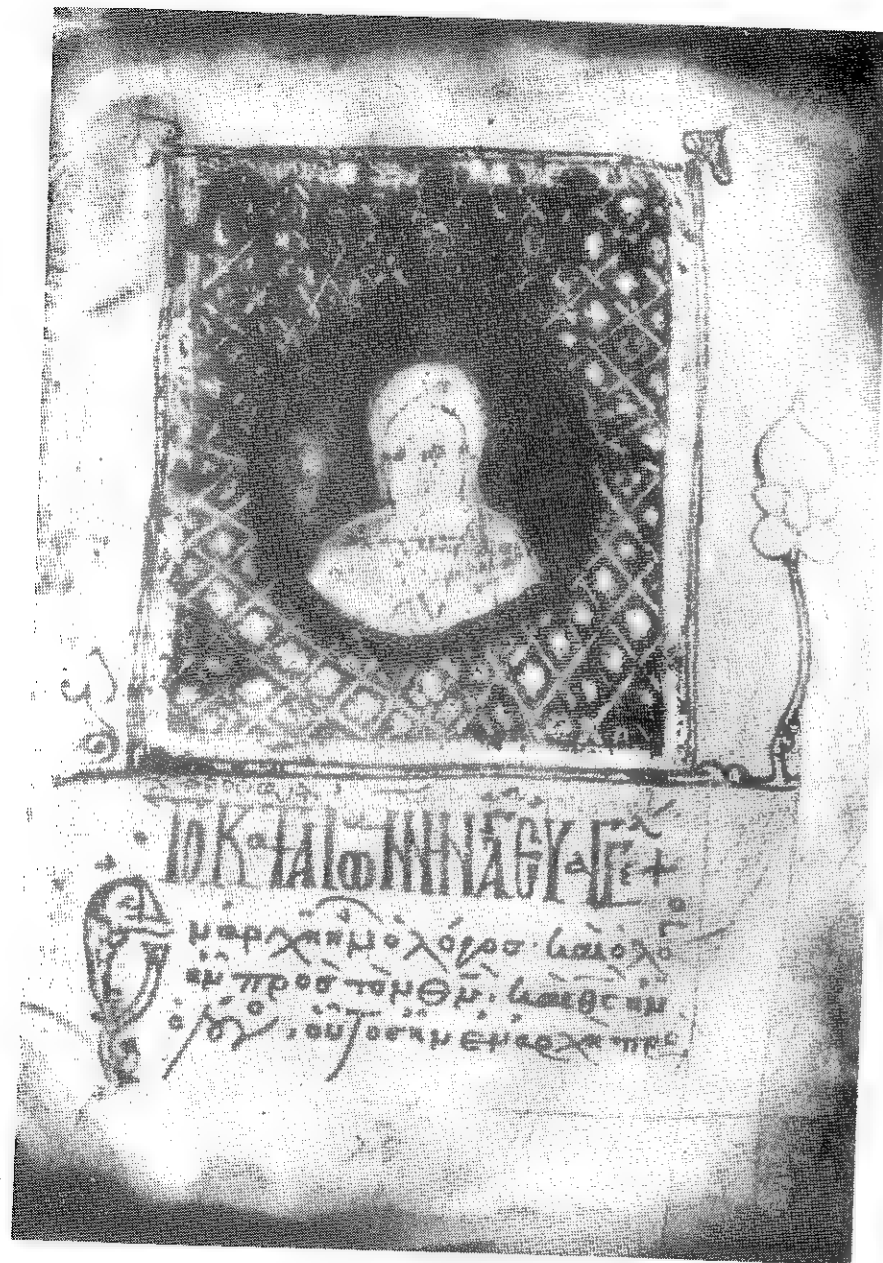 ΤΟ ΚΑΤΑ ΙΩΑΝΝΗΝ ἉΓ ΕΥΑΓΓΕ +
Ἐν ἀρχῆ ἦν ὁ λόγος· καὶ ὁ λό
ἦν πρὸς τὸν θν· καὶ θς ἦν
ὁ λόγος· οὗτος ἦν ἐν ἀρχῆ πρὸ